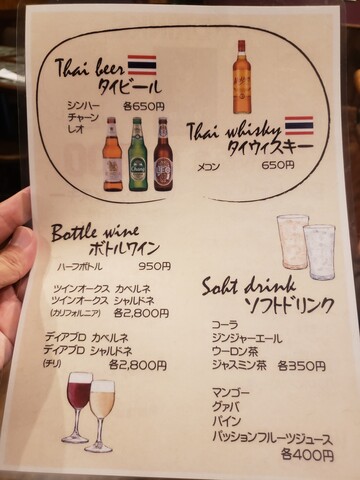 Thai beer
タイビール
シンハー 各650円
チャーン
レオ
Thai whisky
タイウィスキー
メコン 650円
Bottle wine
ボトルワイン
ハーフボトル 950円
ツインオークス カベルネ
ツインオークス シャルドネ
(カリフォルニア) 各2,800円
ディアブロ カベルネ
ディアブロ シャルドネ
(チリ) 各2,800円
Soht drink
ソフトドリンク
コーラ
ジンジャーエール
ウーロン茶
ジャスミン茶 各350円
マンゴー
グァバ
パイン
パッションフルーツジュース
各400円